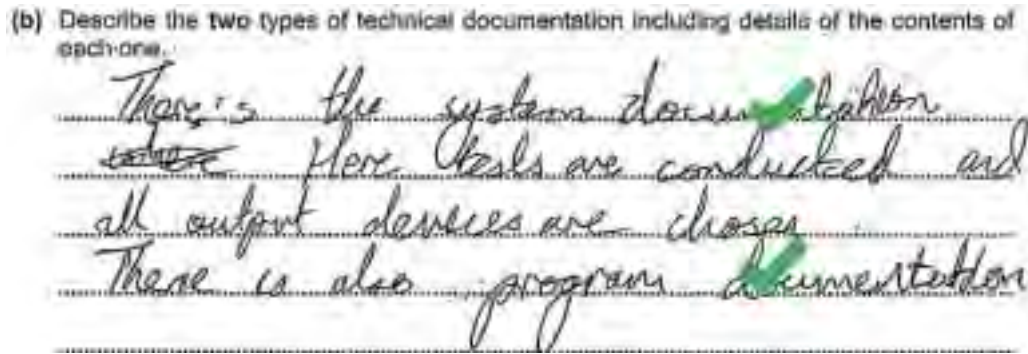 (b) Describe the two types of technical documentation including details of the contents of
each one.
There's the system documentation
Here tests are conducted and
all output devices are chosen.
There is also program documentation